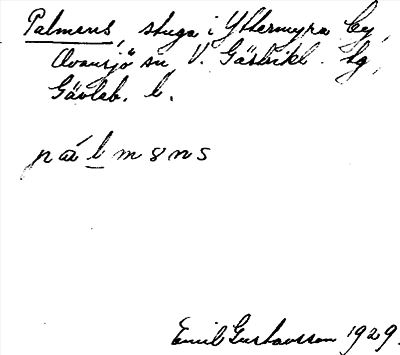 Palmens, stuga i Yttermyra by,
Ovansjö sn V. Gästrikl. tg,
Gävleb. l.
pa᷄lmens
Emil Gustavsson 1929.